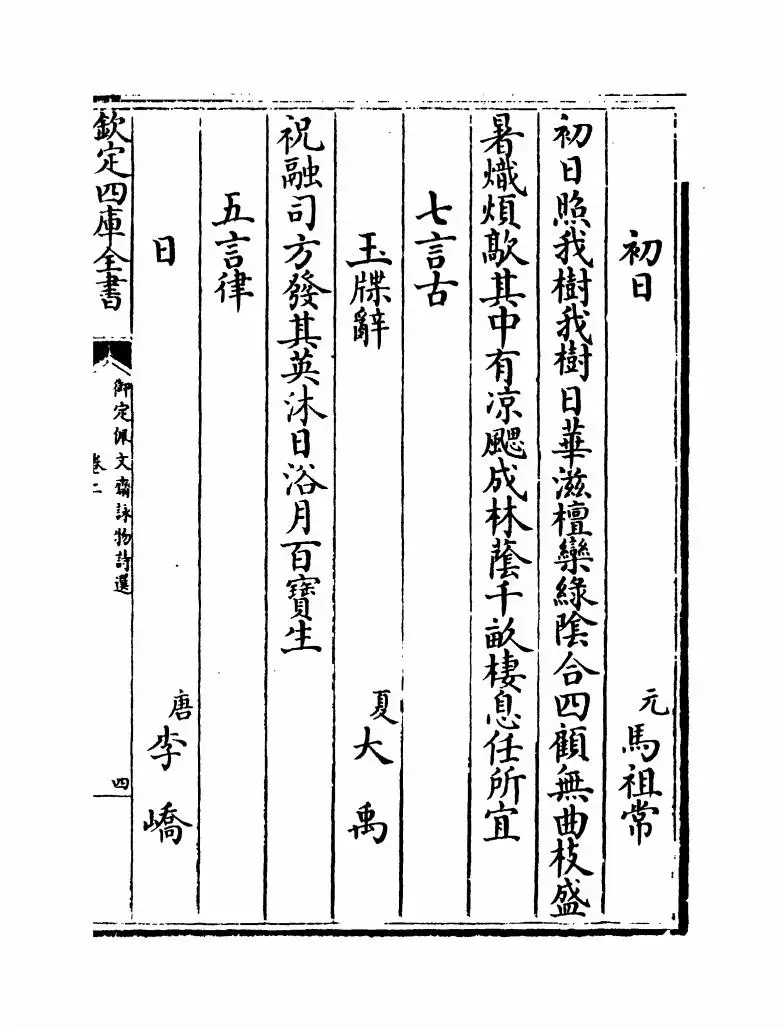 初日　元馬祖常
初日照我樹我樹日華滋檀欒綠陰合四顧無曲枝盛
暑熾煩歊其中有凉颸成林蔭千畝棲息任所宜
七言古
玉牒辭　夏大禹
祝融司方發其英沐日浴月百寶生
五言律
日　唐李嶠
欽定四庫全書
御定佩文齋詠物詩選
卷二
四